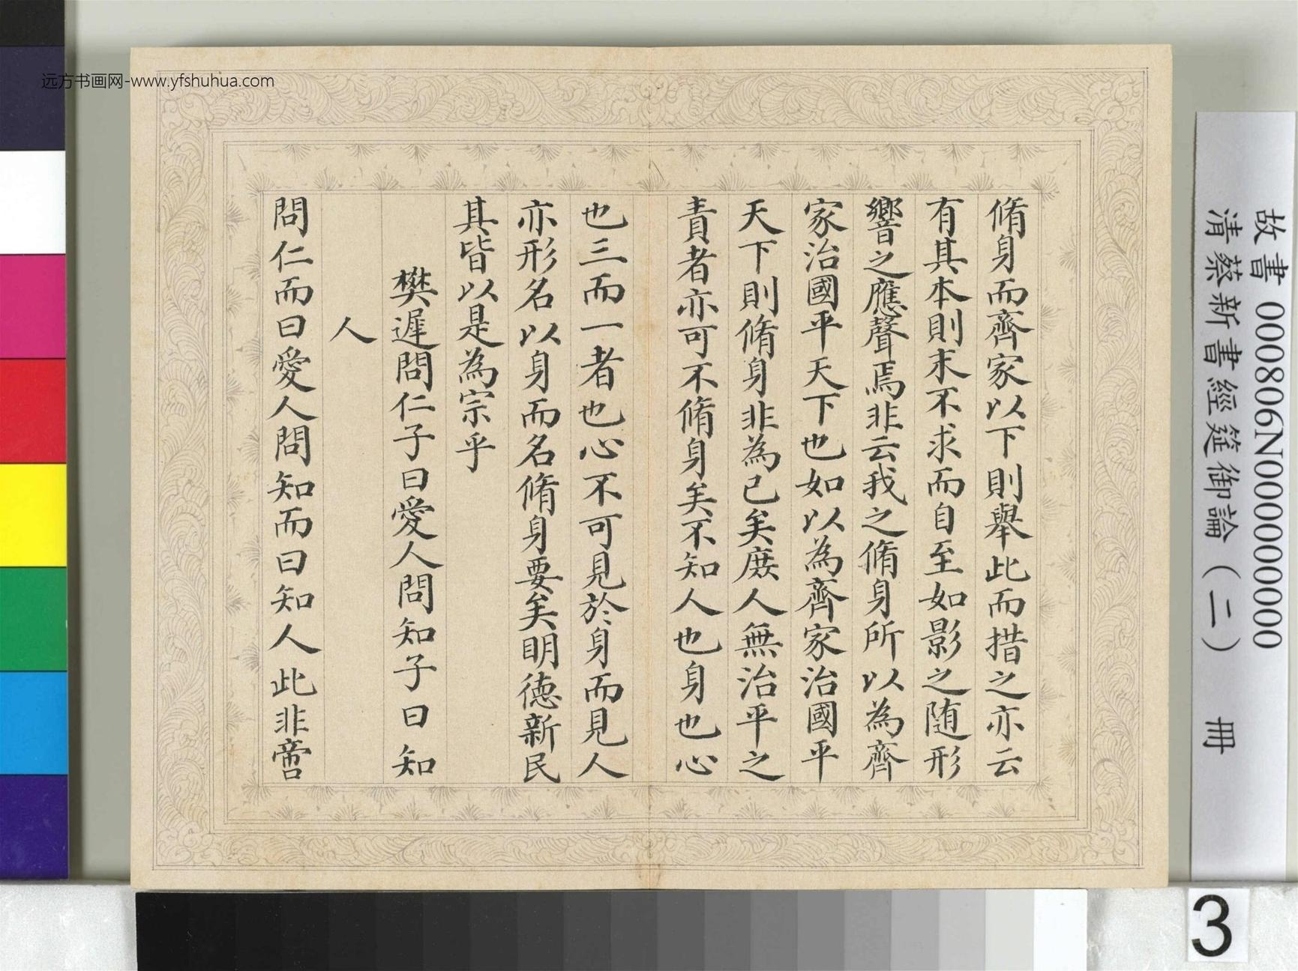 远方书画网-www.yfshuhua.com
脩身而齊家以下則舉此而措之亦云
有其本則末不求而自至如影之随形
響之應聲焉非云我之脩身所以為齊
家治國平天下也如以為齊家治國平
天下則脩身非為己矣庻人無治平之
責者亦可不脩身矣不知人也身也心
也三而一者也心不可見於身而見人
亦形名以身而名脩身要矣明德新民
其皆以是為宗乎
樊遲問仁子曰愛人問知子曰知
人
問仁而曰愛人問知而曰知人此非啻
故書 000806N000000000
清蔡新書經筵御論(二) 冊
3